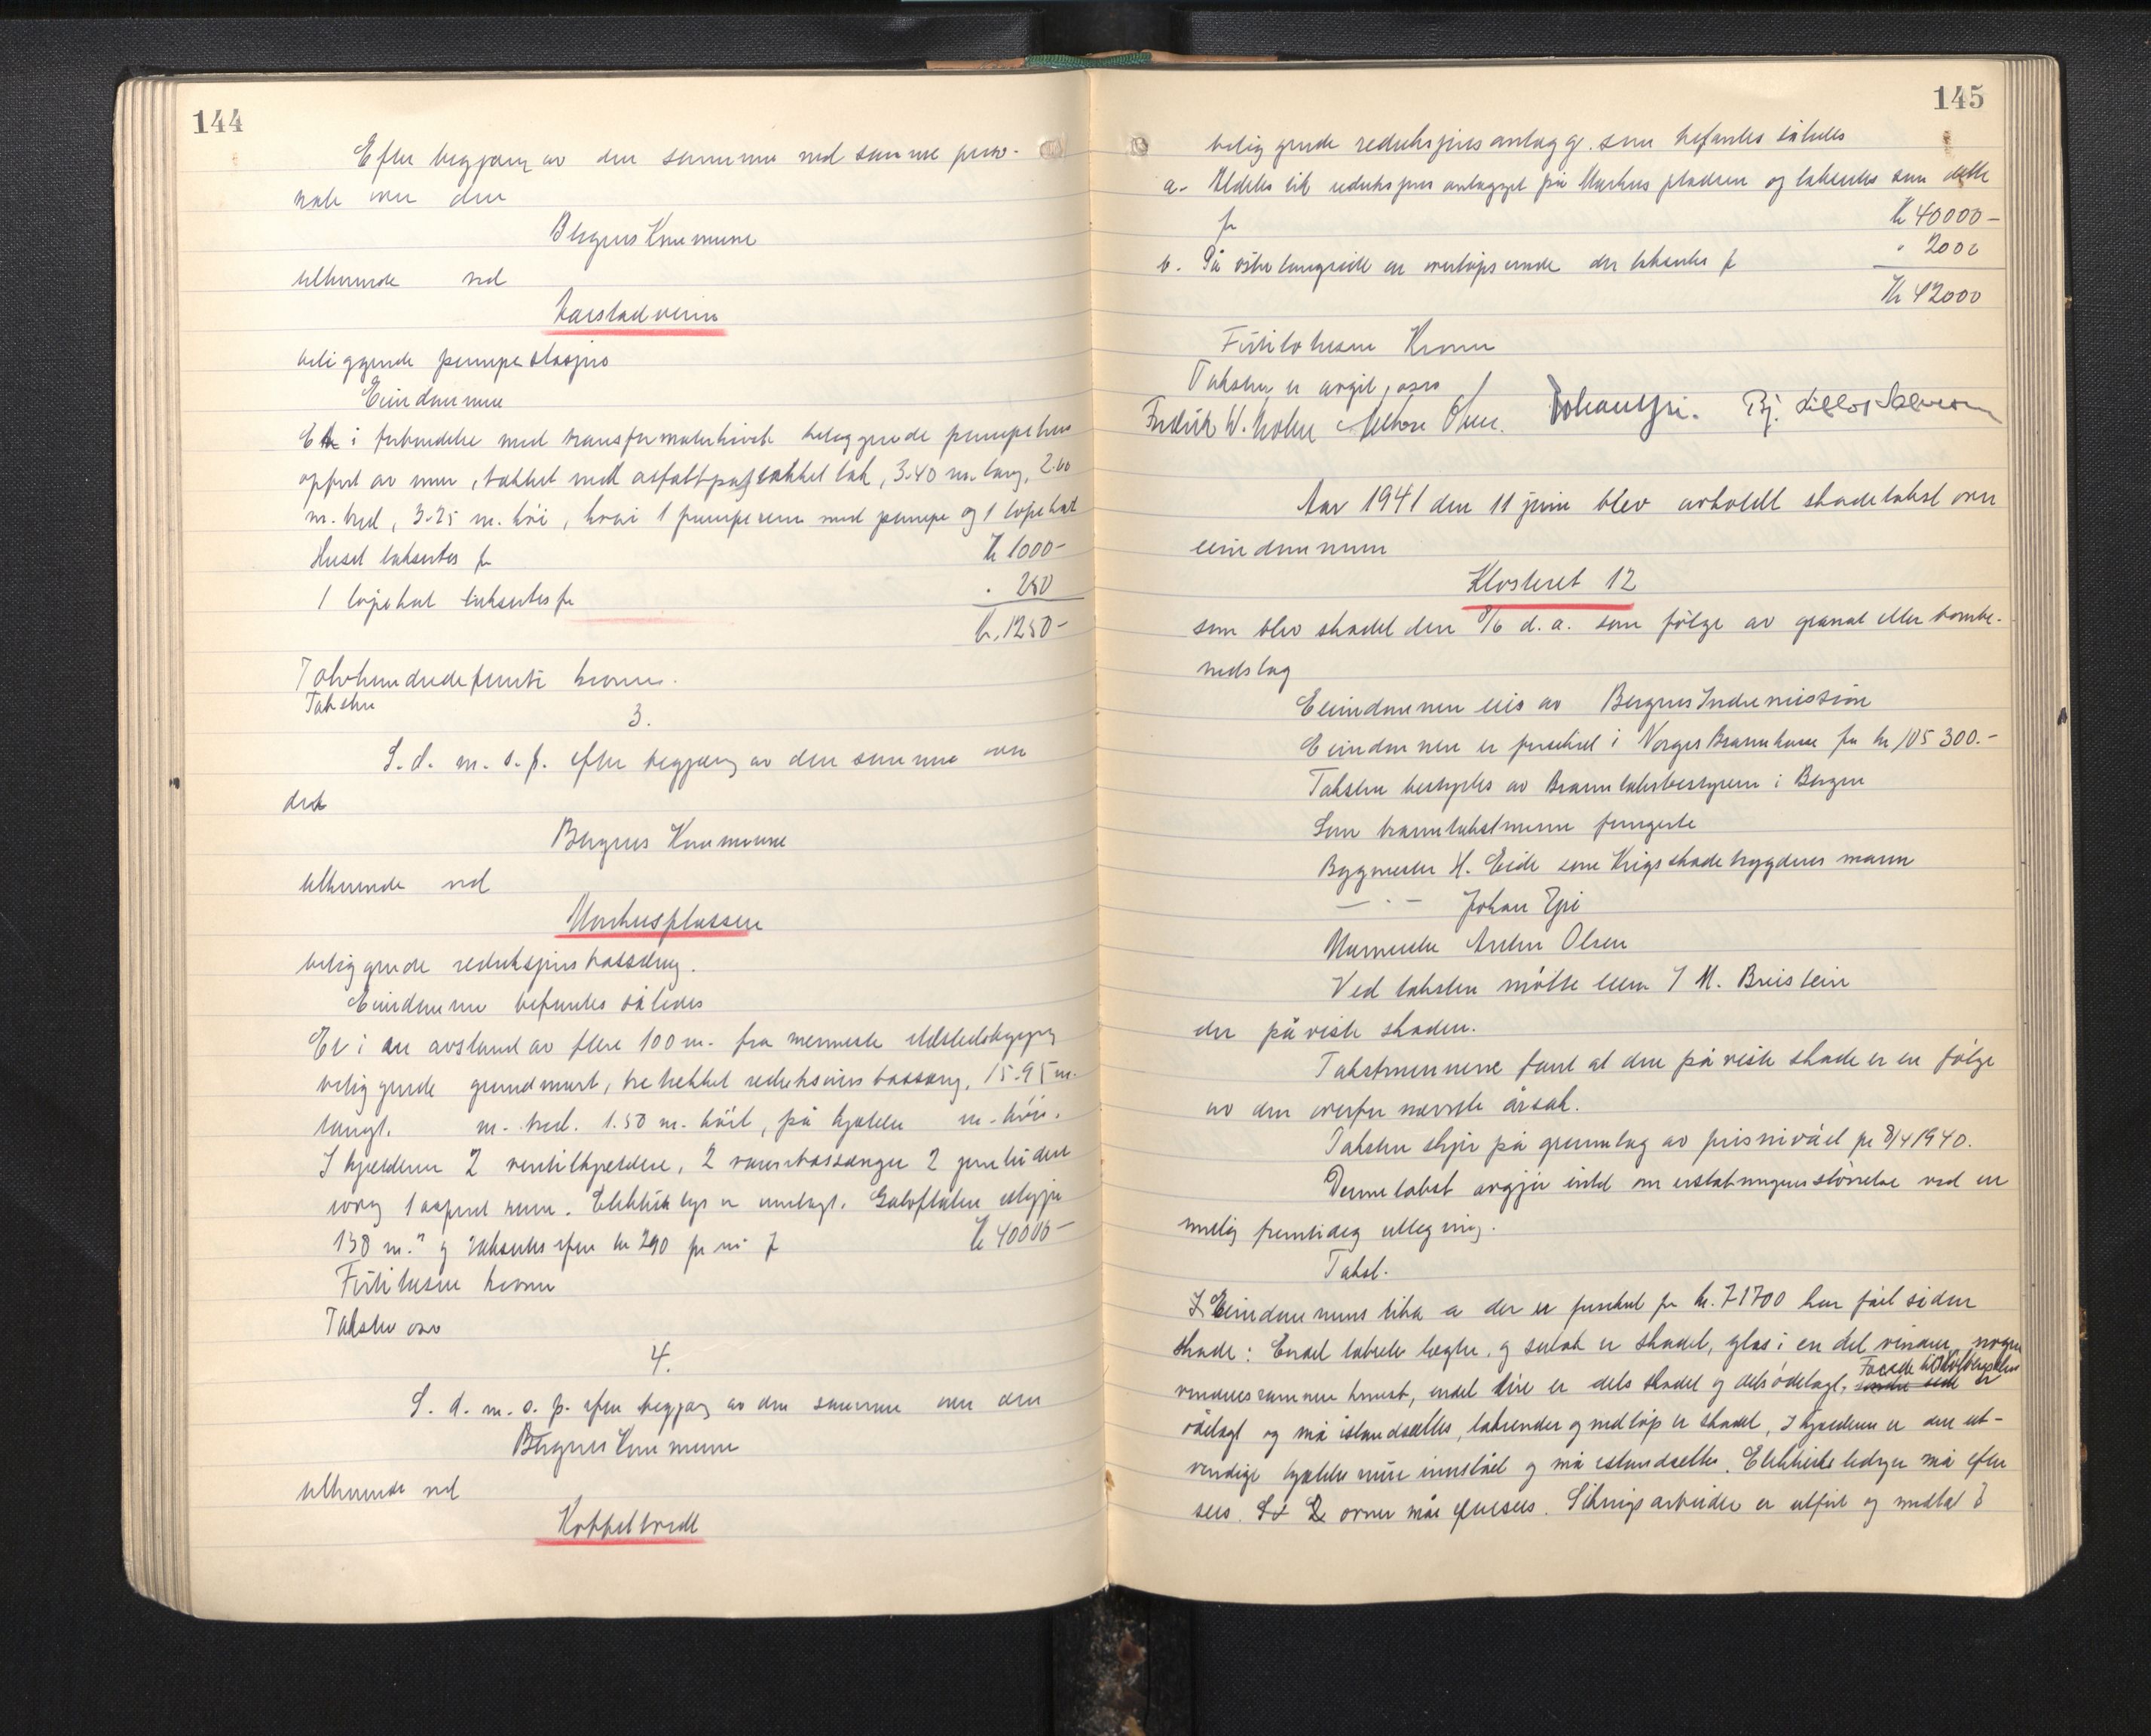 144
Efter begjæring av den samme ved samme
over den
Bergens Kommune
tilhørende ved
beliggende pumpestasjon
Eiendommen
Er i forbindelse med transformatorkiosk beliggende pumpehus
opført av mur, tækket med asfaltpap tækket tak, 3.40 m. lang, 2.60
m. bred, 3.25 m. høi, hvori 1 pumperum med pumpe og 1 løpekat
Huset takseres for Kr 1000-
1 løpekat takseres for " 250
Kr. 1250-
Tolvhundredefemti kroner.
Taksten
3.
S. d. m. s. p. efter begjæring av den samme over
den
Bergens Kommune
tilhørende ved
Markusplassen
beliggende reduksjonsbasseng.
Eiendommen befantes således
Er i en avstand av flere 100 m. fra nærmeste ildstedsbygning
beliggende grundmurt, reduksjons basseng, 15.95 m.
langt. m. bred. 1.50 m. höit, på kjelder m. höi.
I kjelderen 2 ventilkjeldere, 2 vannbassenger 2
1 rum. Elektrisk lys er innlagt. Gulvflaten utgjør
138 m.² og takseres efter kr 290 pr m² f Kr 40000-
Förti tusen kroner
Taksten osv
4.
S. d. m. s. p. efter begjæring av den samme over den
Bergens Kommune
tilhørende ved
145
beliggende reduksjonsanlegg. som befantes således
a. Aldeles lik reduksjons anlegget på Markus pladsen og takseres som dette
for Kr 40000-
b. På østre langside en overløps der takseres f " 2000
Kr 42000
Förtito tusen Kroner
Taksten er avgit, osv
Aar 1941 den 11 juni blev avholdt skadetakst over
eiendommen
Klosteret 12
som blev skadet den 8/6 d. a. som følge av granat eller bombe-
nedslag
Eiendommen eies av Bergens Indremission
Eiendommen er forsikret i Norges Brannkasse for kr 105 300.-
Taksten bestyrtes av Branntakstbestyreren i Bergen
Som branntakstmenn fungerte
Byggmester H. Eide som Krigsskadetrygdens mann
— " — Johan Gjri
Murmester Anton Olsen
Ved taksten møtte J M. Breistein
der påviste skaden.
Takstmennene fant at den påviste skade er en følge
av den ovenfor nevnte årsak.
Taksten skjer på grunnlag av prisnivået pr 8/4 1940.
Denne takst avgjør intet om erstatningens størrelse ved en
mulig fremtidig utlegning.
Takst.
I Eiendommens litra a der er forsikret for kr. 71700 har fået siden
skade: Endel taksten, lægter og sutak er skadet, glas i en del vinduer, nogen
vinduesrammer knust, endel dører er dels skadet og dels ödelagt. Facade til
ödelagt og må istandsettes, takrender og nedløp er skadet, I kjelderen er den ut-
vendige kjelder mur innslået og må istandsettes. Elektriske ledninger må efter
sees. 2 ovner må eftersees. Sikringsarbeider er utført og medtat i